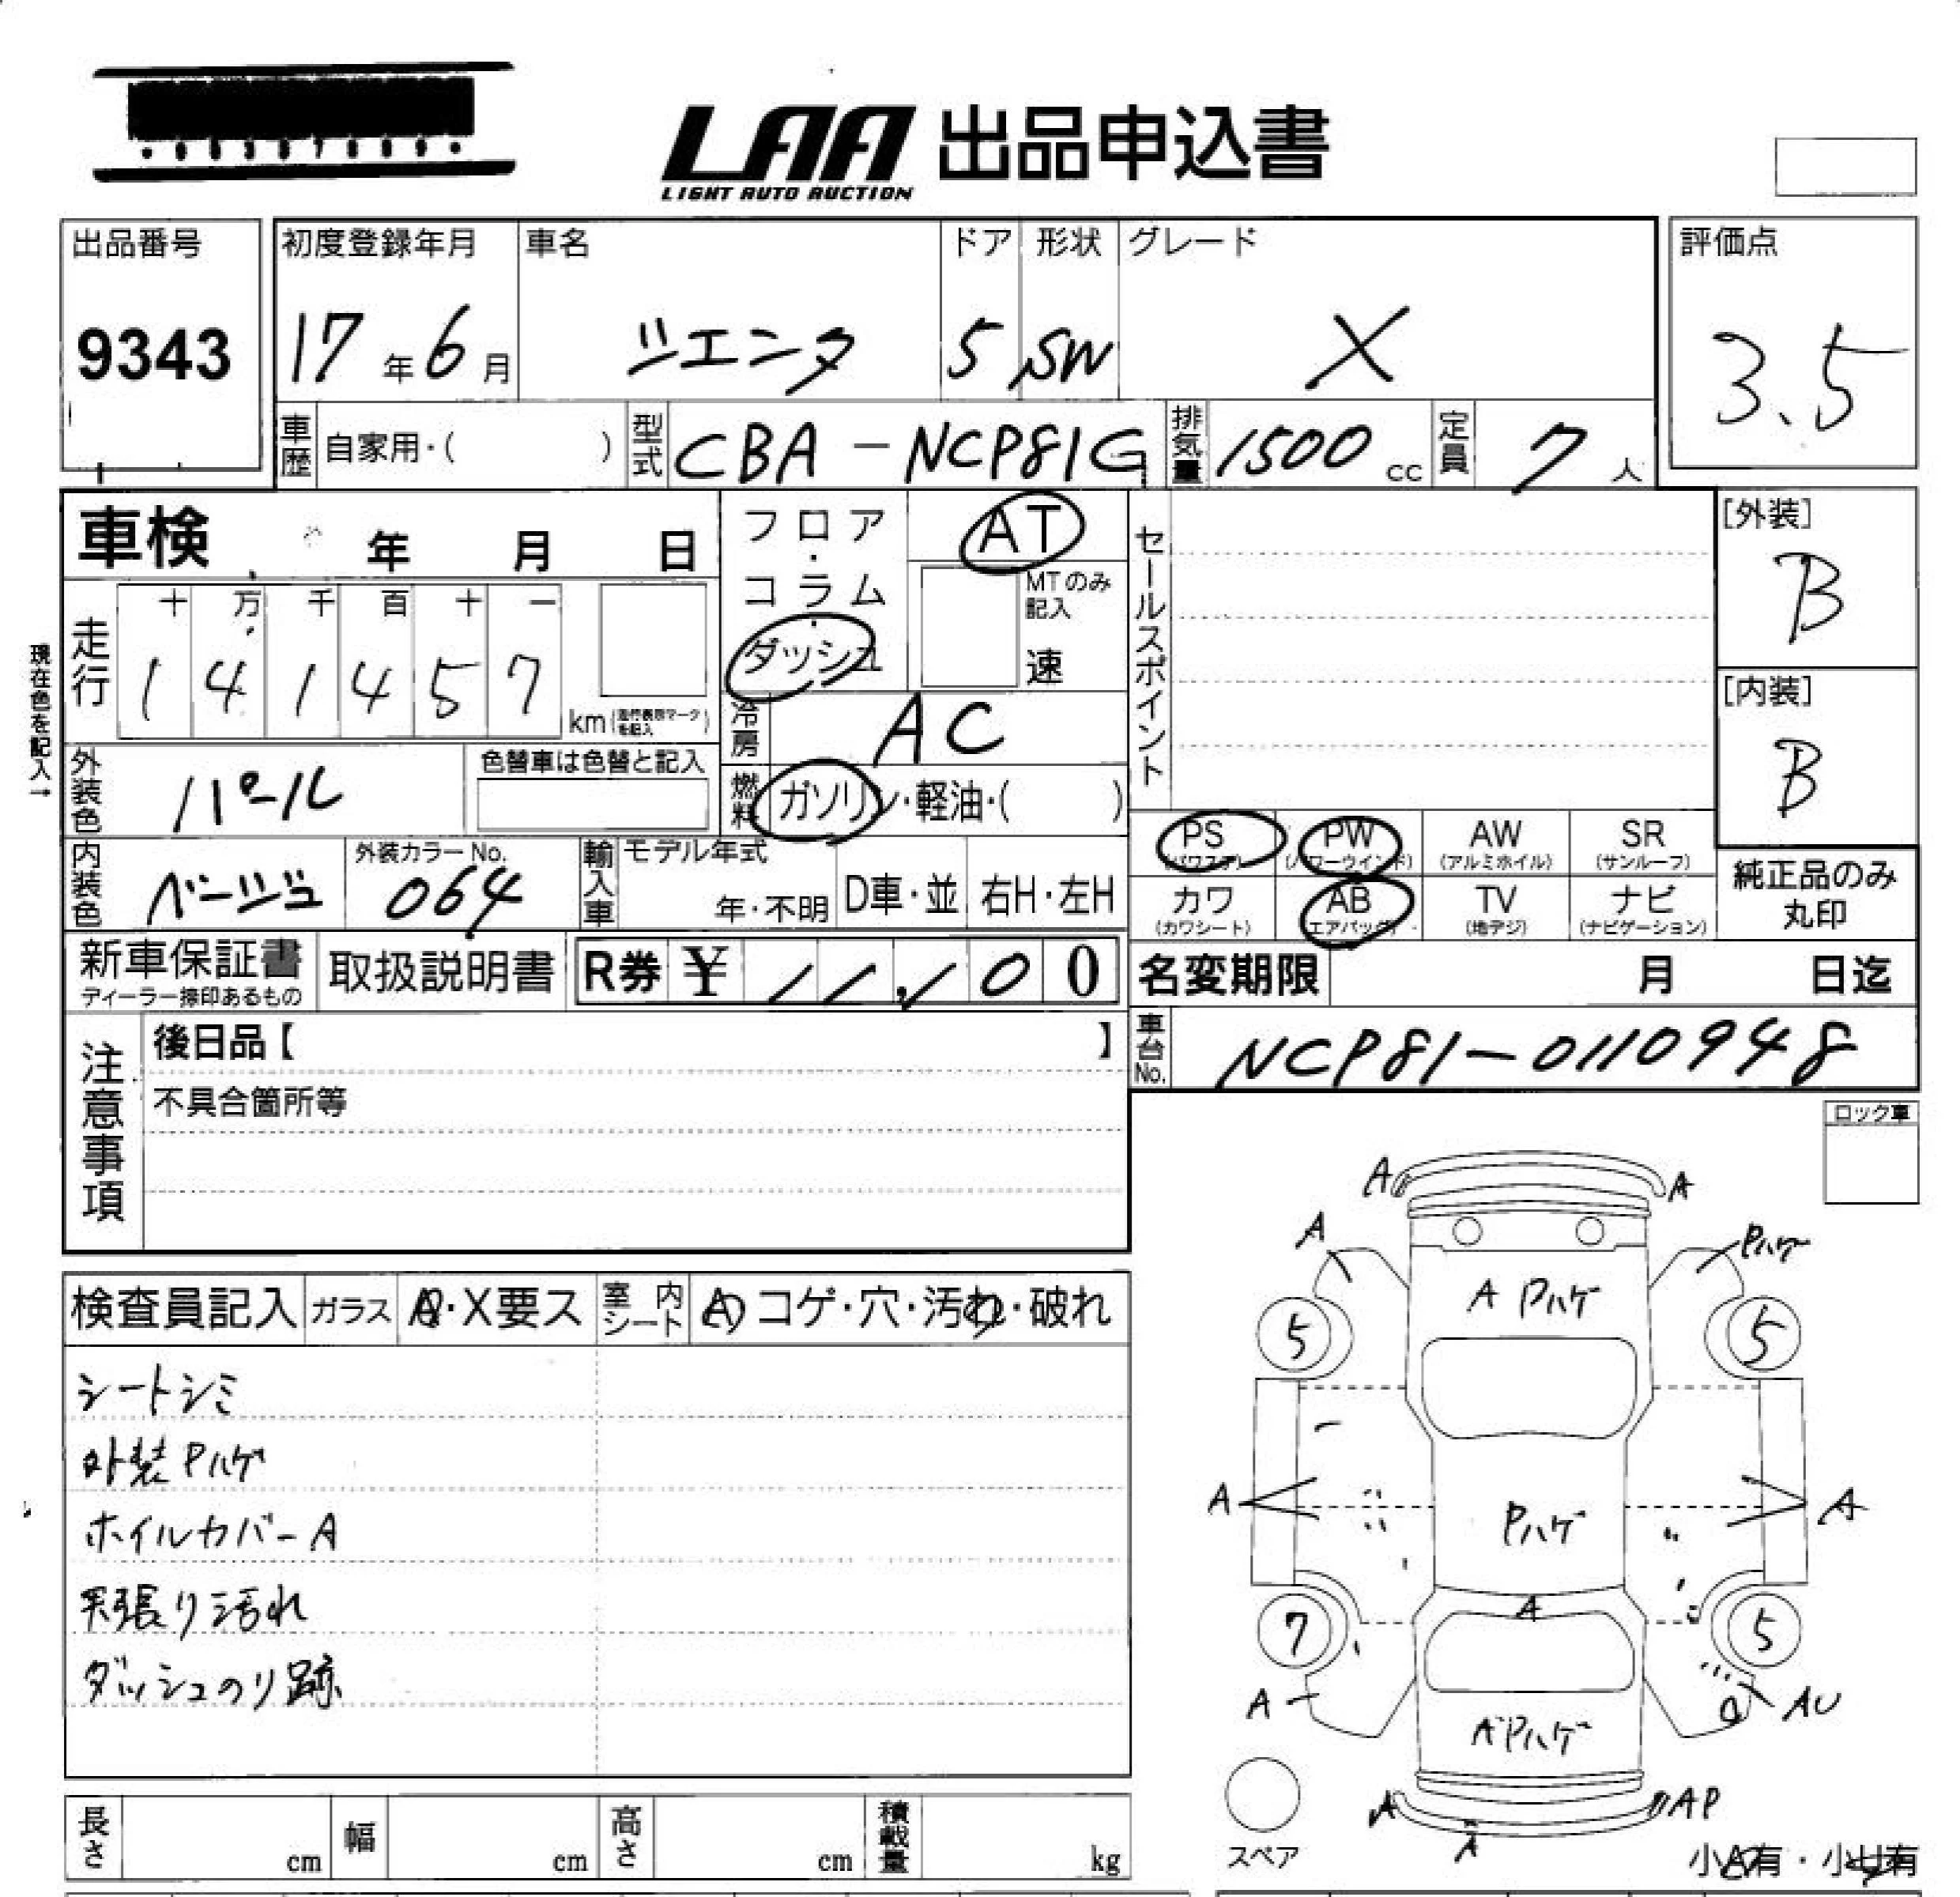 LAA 出品申込書
LIGHT AUTO AUCTION
出品番号 初度登録年月 車名 ドア 形状 グレード 評価点
9343 17年6月 ジエンタ 5 SW X 3.5
車歴 自家用・( ) 型式 CBA-NCP81G 排気量 1500cc 定員 7人
車検 年 月 日 フロア・コラム・ダッシュ AT セールスポイント [外装]
B
MTのみ記入 速
十 万 千 百 十 一
走行 1 4 1 4 5 7 km(走行表示マークを記入)
現在色を記入→
[内装]
B
冷房 AC
外装色 パール 色替車は色替と記入 燃料 ガソリン・軽油・( )
PS(パワステ) PW(パワーウインド) AW(アルミホイル) SR(サンルーフ)
内装色 ベージュ 外装カラーNo. 064 輸入車 モデル年式 年・不明 D車・並 右H・左H
カワ(カワシート) AB(エアバッグ) TV(地デジ) ナビ(ナビゲーション) 純正品のみ丸印
新車保証書 取扱説明書 R券 ¥ 0 0 名変期限 月 日迄
ディーラー捺印あるもの
車台No. NCP81-0110948
注意事項 後日品【 】
不具合箇所等
ロック車
検査員記入 ガラス ・X要ス 室内シート コゲ・穴・汚れ・破れ
シートシミ
外装Pハゲ
ホイルカバーA
天張り汚れ
ダッシュのり跡
A A
A Pハゲ
A Pハゲ
5 5
A Pハゲ A
A
7 5
A AU
A Pハゲ
A AP
A
スペア
小 有・小 有
長さ cm 幅 cm 高さ cm 積載量 kg